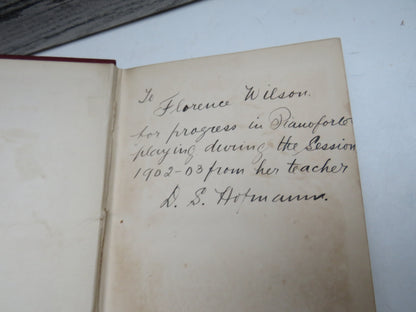 To
Florence Wilson.
for progress in Pianoforte
playing during the Session
1902-03 from her teacher
D. S. Hofmann.